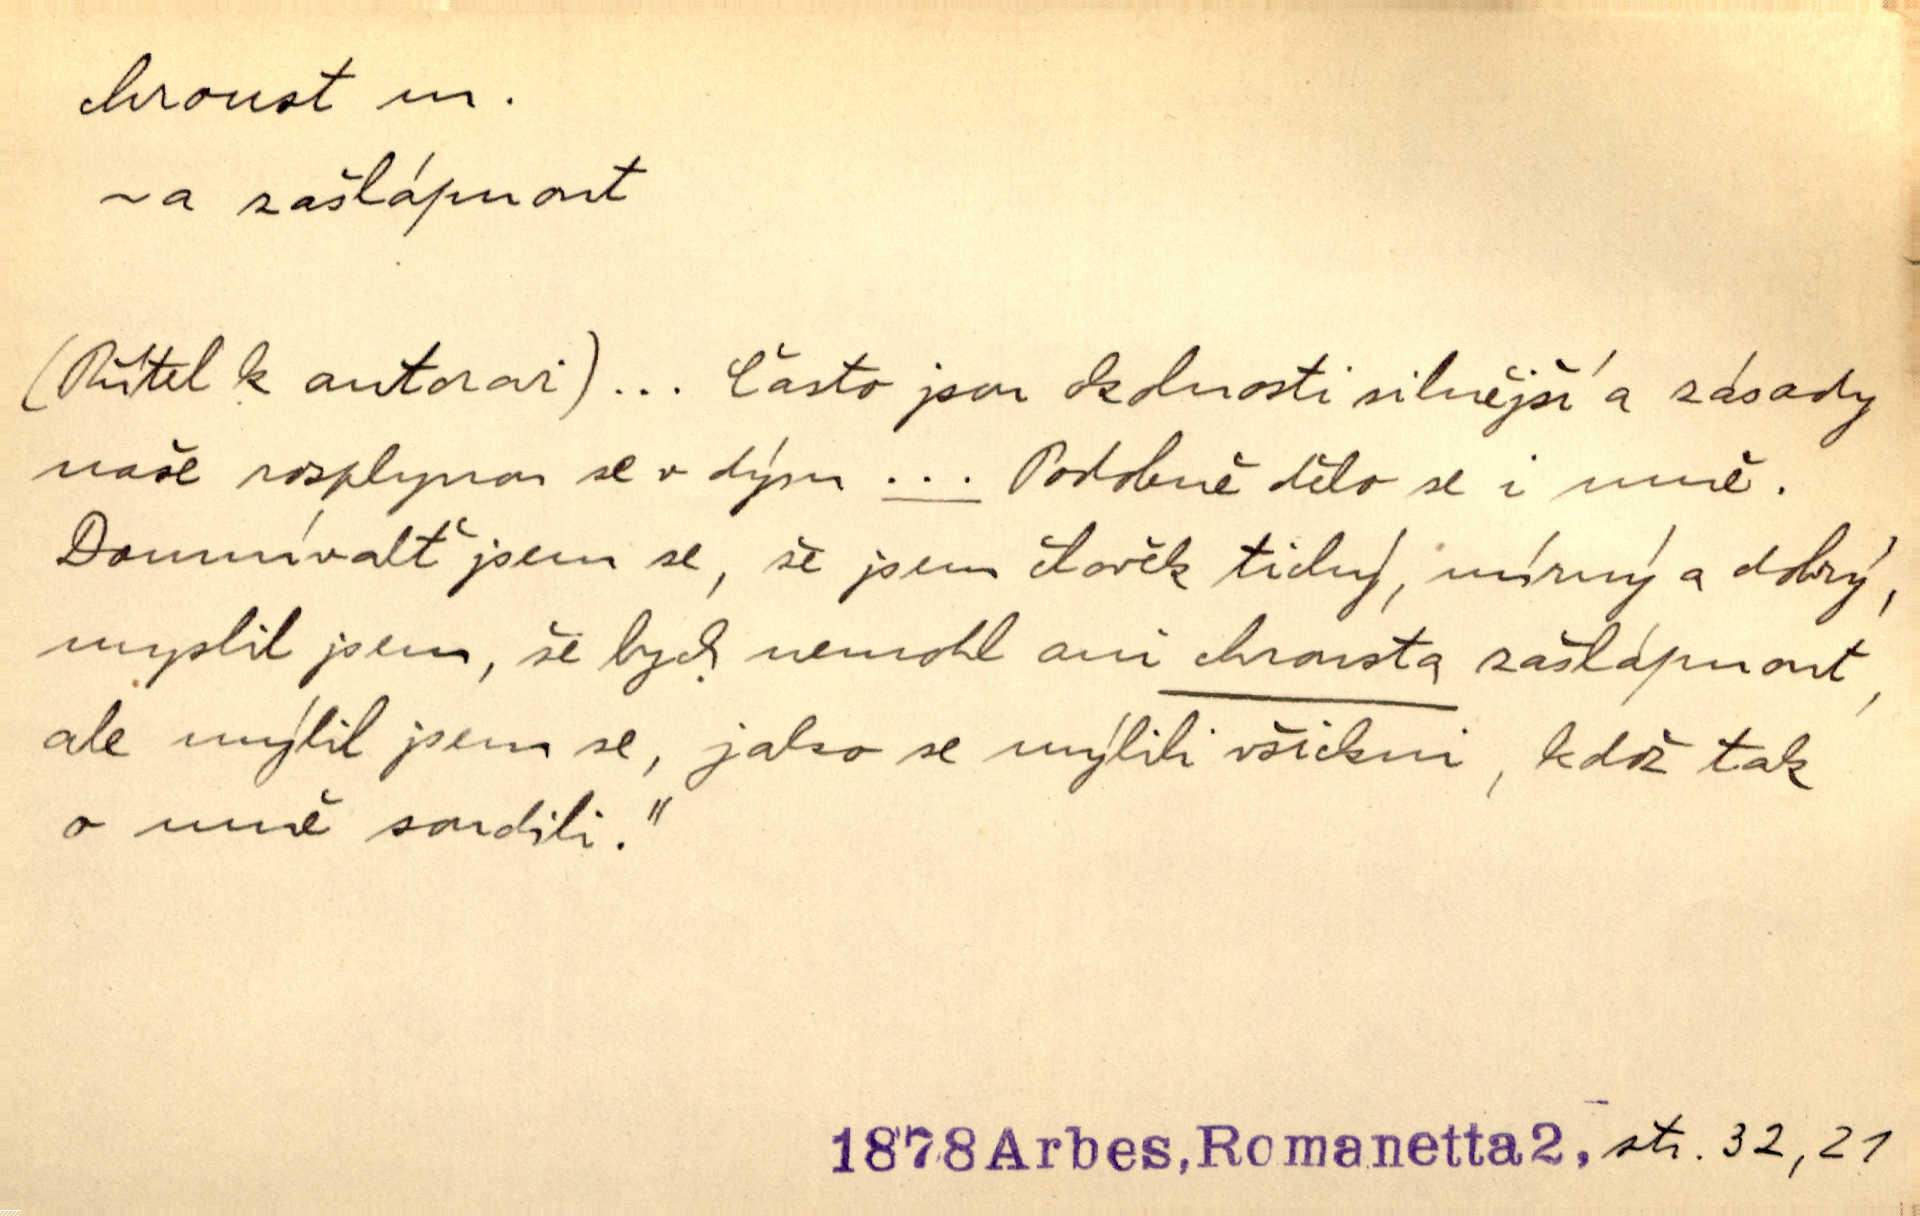 chroust m.
~a zašlápnout
(Přítel k autorovi) ... Často jsou okolnosti silnější a zásady
naše rozplynou se v dým ... Podobně dělo se i mně.
Domnívalť jsem se, že jsem člověk tichý, mírný a dobrý,
myslil jsem, že bych nemohl ani chrousta zašlápnout,
ale mýlil jsem se, jako se mýlili všickni, kdož tak
o mně soudili."
1878 Arbes, Romanetta 2, str. 32, 21